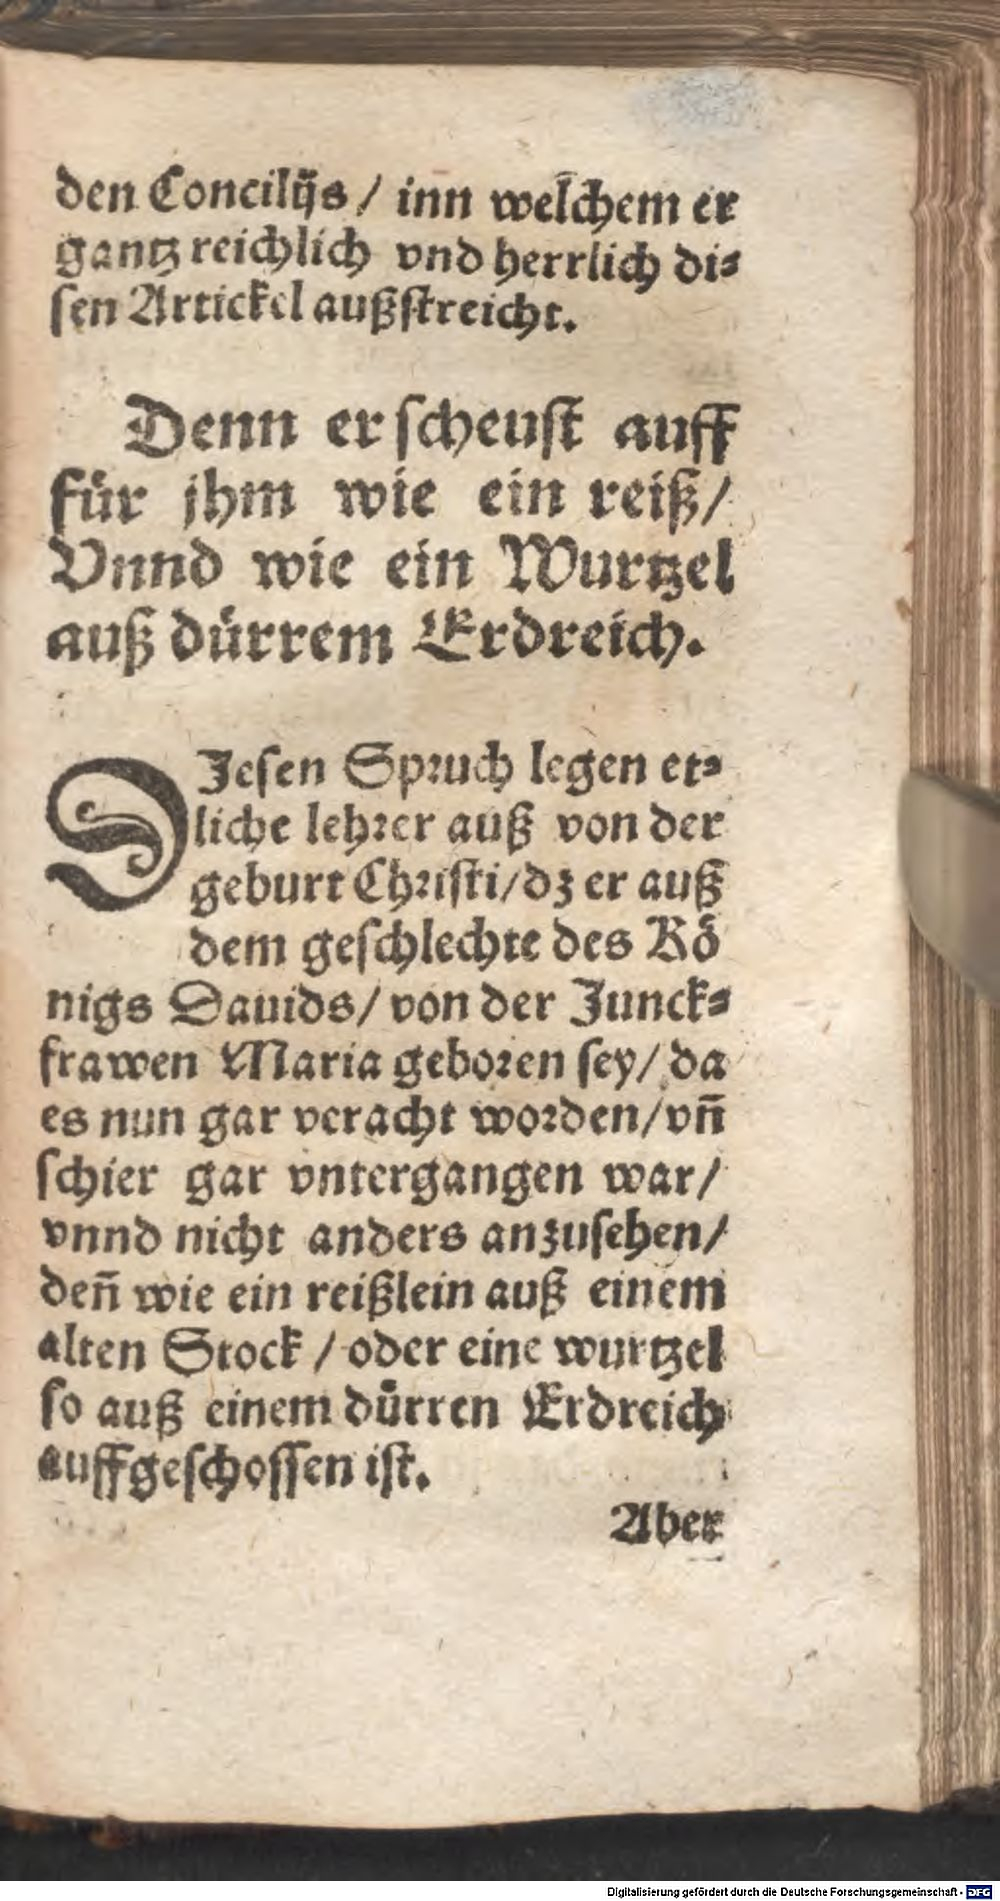 den Concilijs / inn welchem er
gantz reichlich vnd herrlich di⸗
sen Artickel außstreicht.
Denn er scheust auff
für jhm wie ein reiß /
Vnnd wie ein Wurtzel
auß dürrem Erdreich.
DJesen Spruch legen et⸗
liche lehrer auß von der
geburt Christi / dz er auß
dem geschlechte des Kö
nigs Dauids / von der Junck⸗
frawen Maria geboren sey / da
es nun gar veracht worden / vñ
schier gar vntergangen war /
vnnd nicht anders anzusehen /
deñ wie ein reißlein auß einem
alten Stock / oder eine wurtzel
so auß einem dürren Erdreich
auffgeschossen ist.
Aber
Digitalisierung gefördert durch die Deutsche Forschungsgemeinschaft - DFG